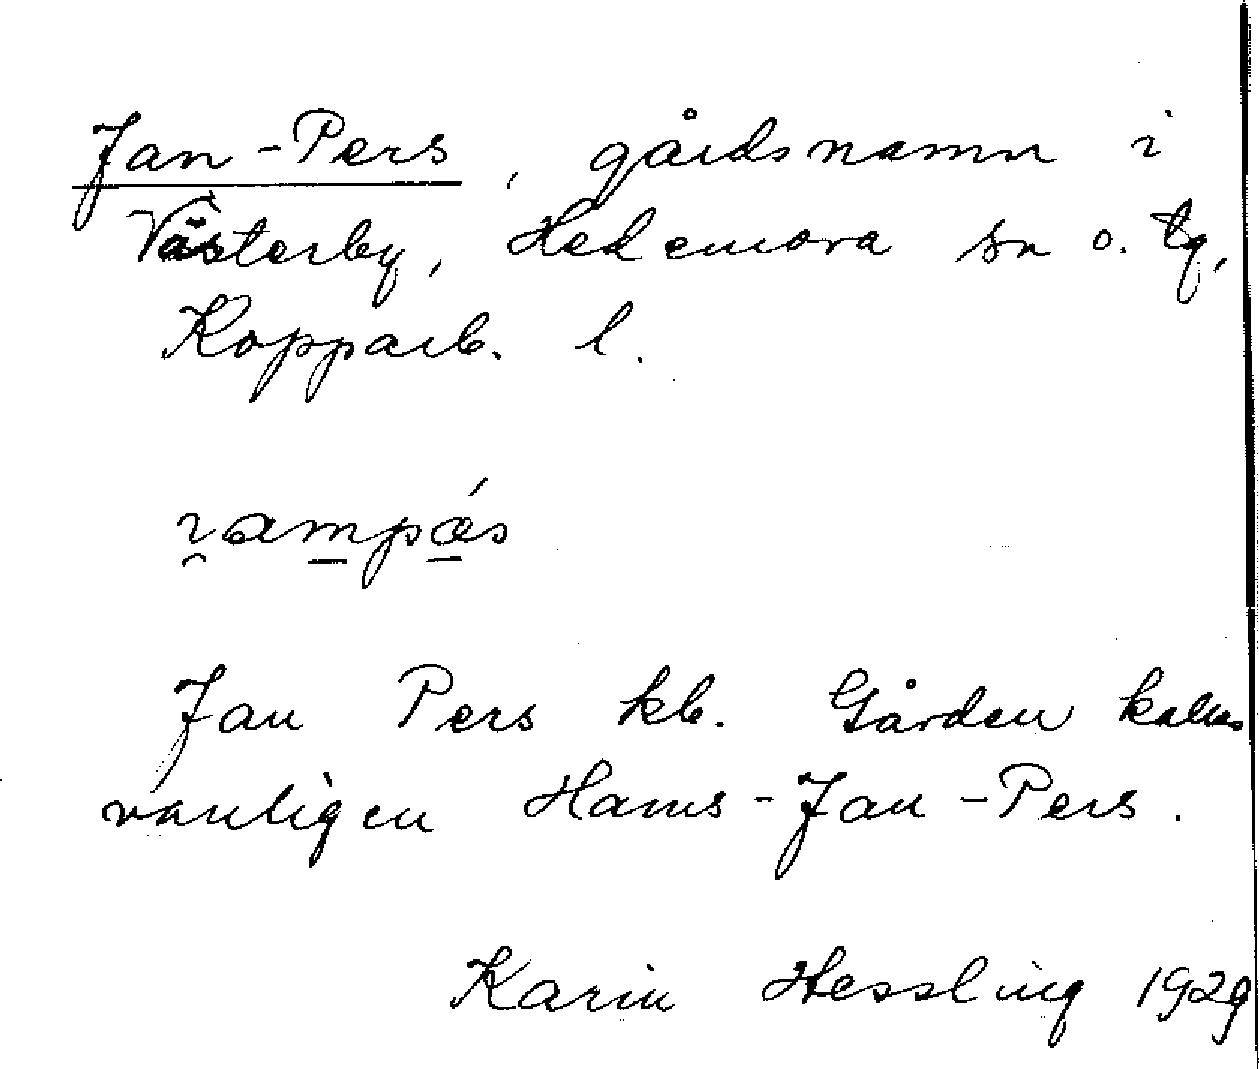 Jan-Pers, gårdsnamn i
Västerby, Hedemora sn o. tg,
Kopparb. l.
Jan Pers kb. Gården kallas
vanligen Hams-Jan-Pers.
Karin Hessling 1929